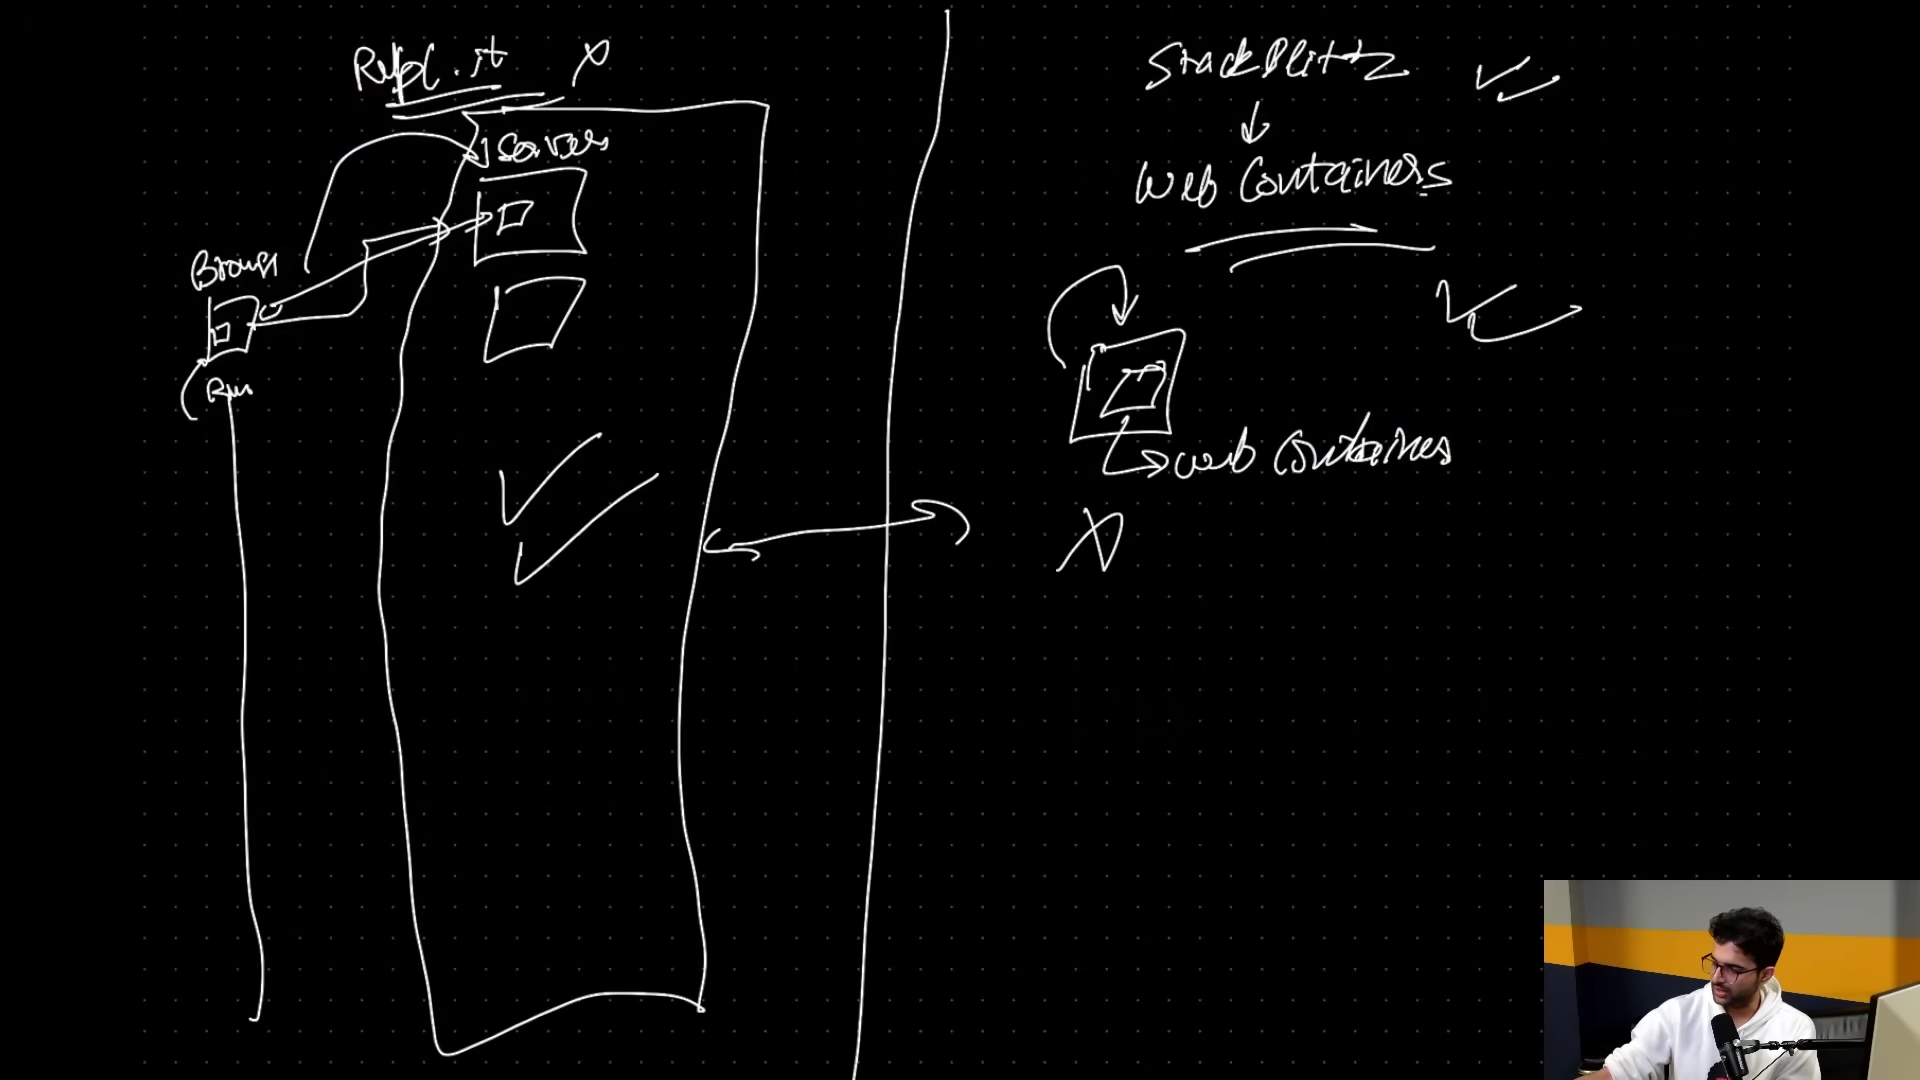 Repl.it
Servers
Brows
Run
StackBlitz
Web Containers
web Containers